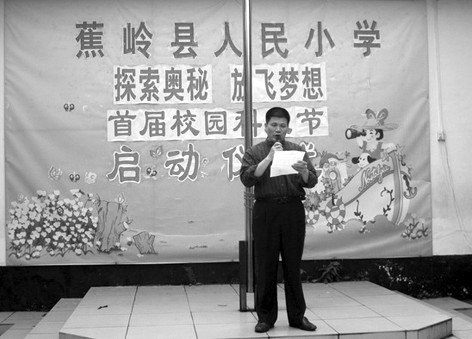 蕉岭县人民小学
探索奥秘 放飞梦想
首届校园科技节
启动仪式